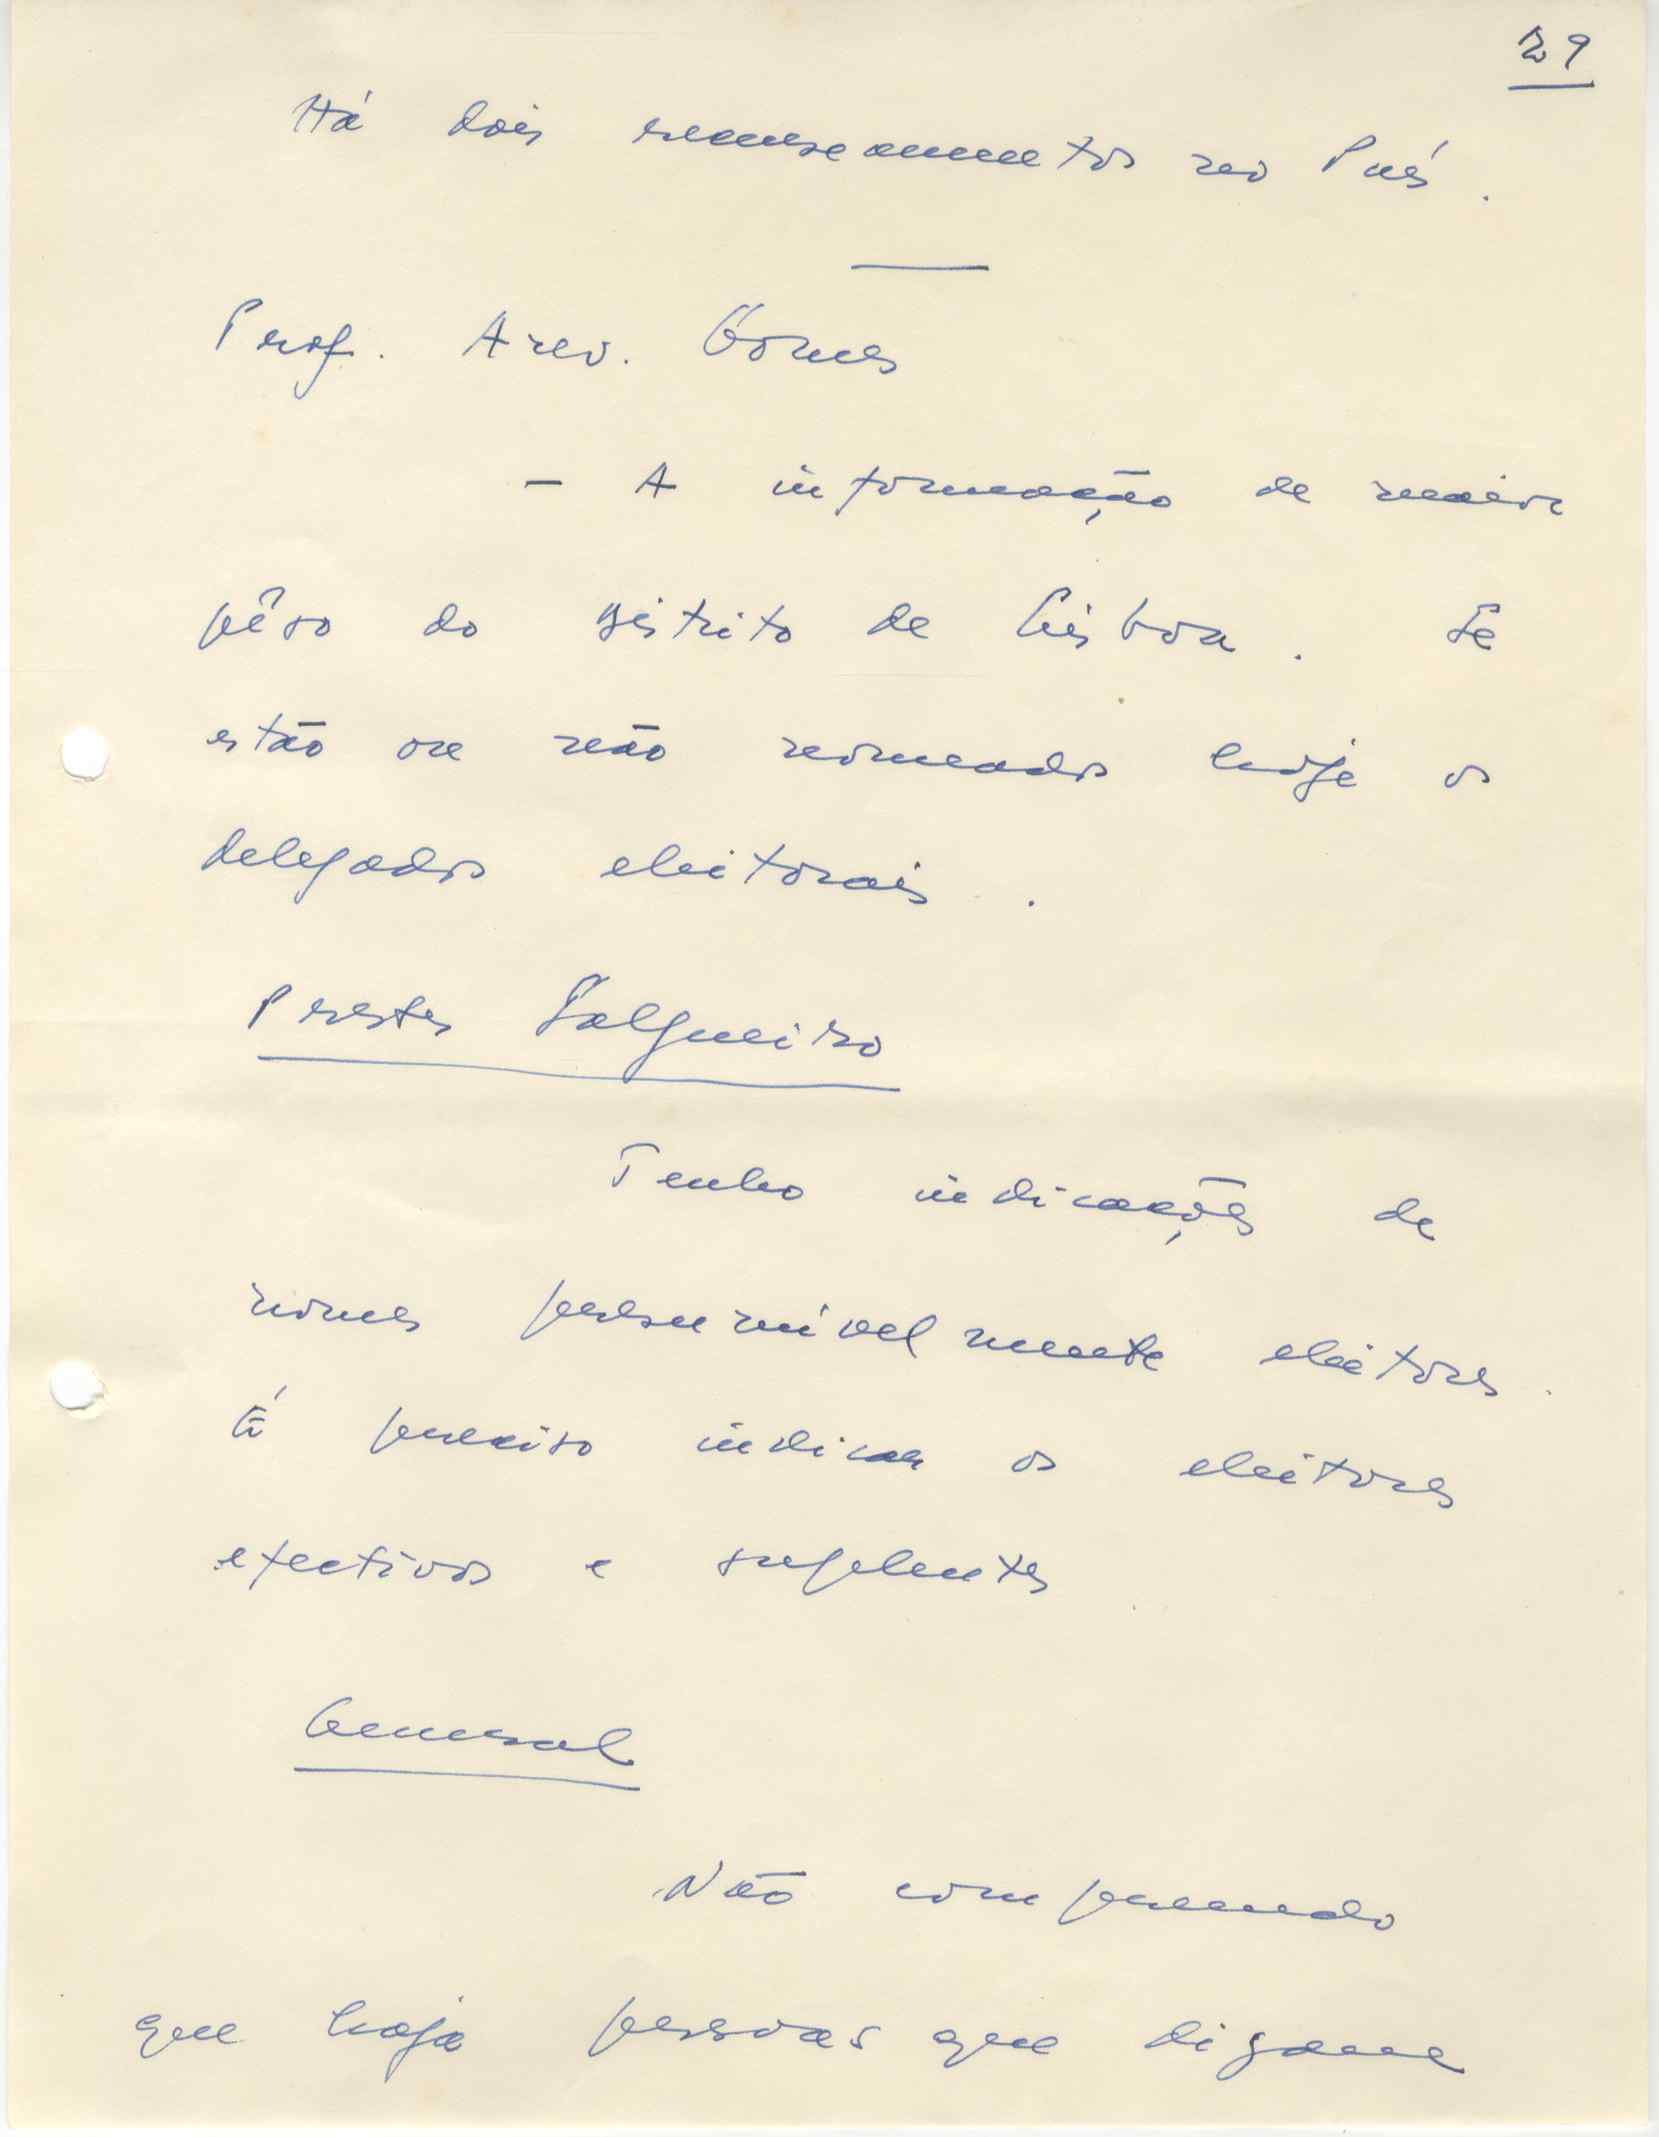 29
Há dois recenseamentos no País.
Prof. Azev. Gomes
- A informação de maior
pêso do distrito de Lisboa. Se
estão ou não nomeados hoje os
delegados eleitorais.
Prestes Salgueiro
Tenho indicações de
nomes presumìvelmente eleitores.
É preciso indicar os eleitores
efectivos e suplentes
General
Não compreendo
que haja pessoas que digam